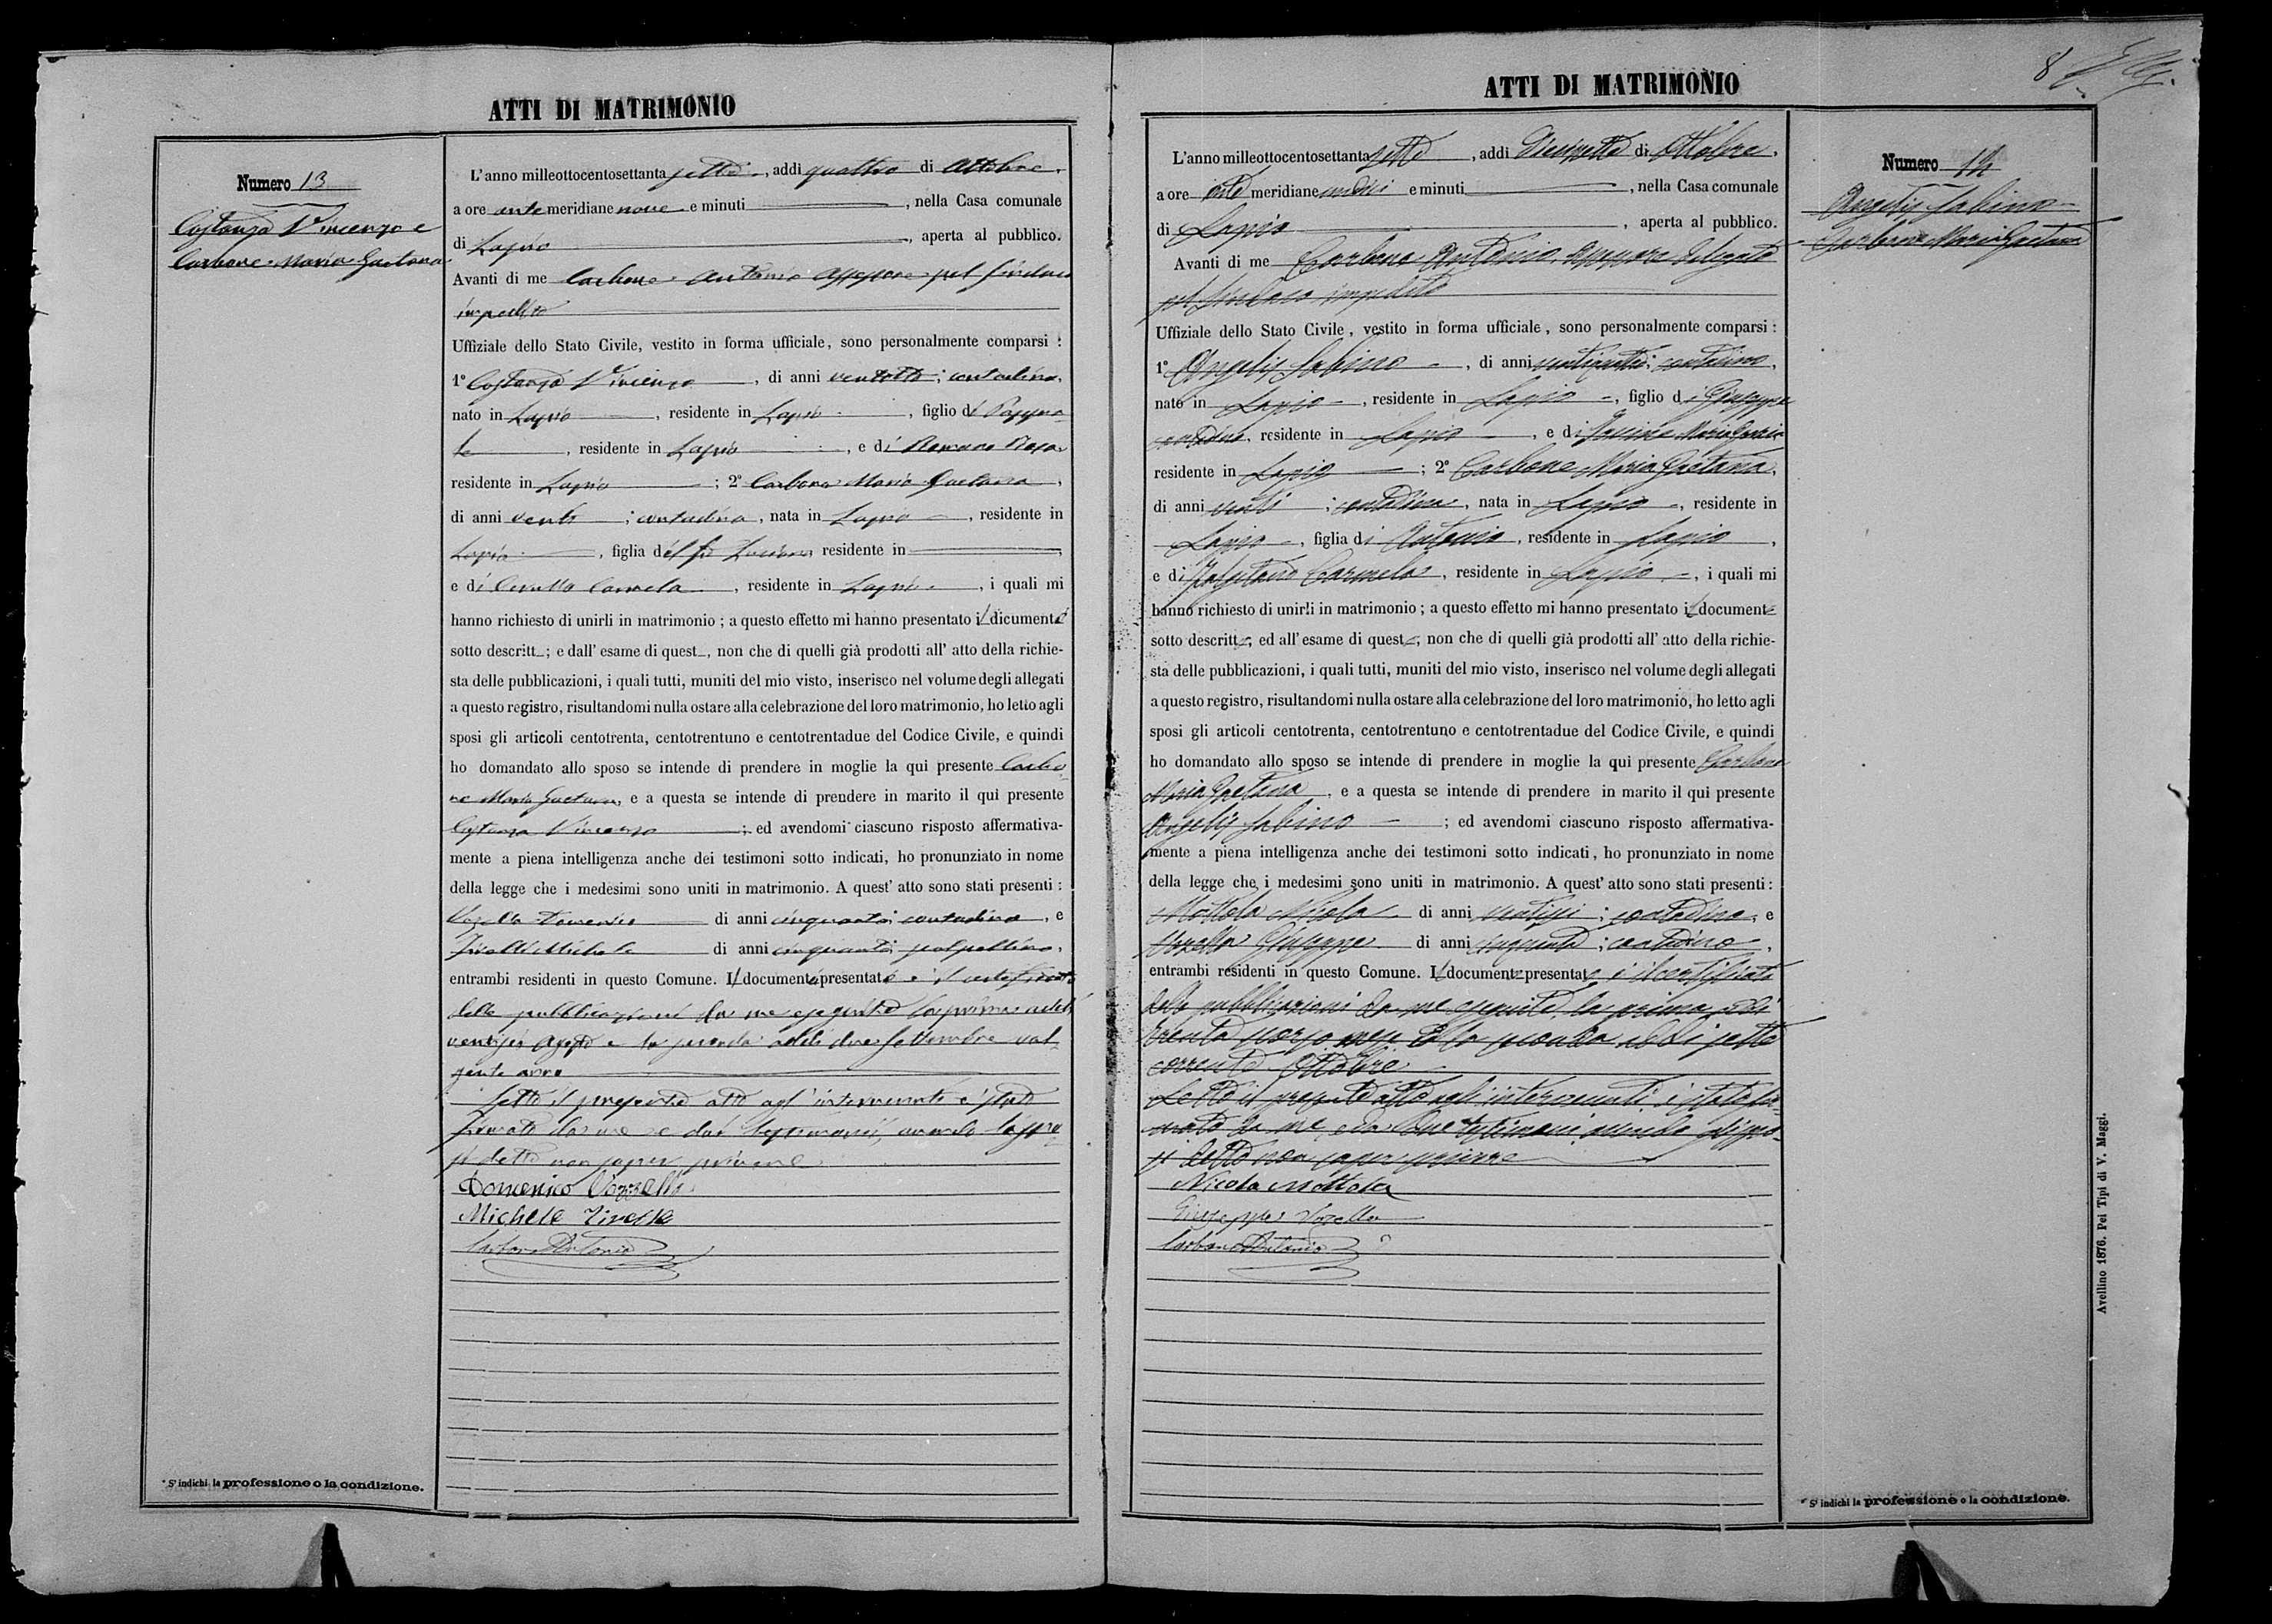 ATTI DI MATRIMONIO
Numero 13
Costanza Vincenzo e
Carbone Maria Gaetana
L'anno milleottocentosettanta sette, addì quattro di Ottobre,
a ore ante meridiane nove e minuti, nella Casa comunale
di Lapio, aperta al pubblico.
Avanti di me Carbone Antonio Assessore pel Sindaco
impedito
Uffiziale dello Stato Civile, vestito in forma ufficiale, sono personalmente comparsi:
1º Costanza Vincenzo, di anni ventotto; contadino,
nato in Lapio, residente in Lapio, figlio di
residente in Lapio, e di Romano Rosa
residente in Lapio; 2º Carbone Maria Gaetana,
di anni venti; contadina, nata in Lapio, residente in
Lapio, figlia del fu residente in
e di Carmela, residente in Lapio, i quali mi
hanno richiesto di unirli in matrimonio; a questo effetto mi hanno presentato il dicumento
sotto descritt; e dall'esame di quest, non che di quelli già prodotti all'atto della richie-
sta delle pubblicazioni, i quali tutti, muniti del mio visto, inserisco nel volume degli allegati
a questo registro, risultandomi nulla ostare alla celebrazione del loro matrimonio, ho letto agli
sposi gli articoli centotrenta, centotrentuno e centotrentadue del Codice Civile, e quindi
ho domandato allo sposo se intende di prendere in moglie la qui presente Carbo
ne Maria Gaetana, e a questa se intende di prendere in marito il qui presente
Costanza Vincenzo; ed avendomi ciascuno risposto affermativa-
mente a piena intelligenza anche dei testimoni sotto indicati, ho pronunziato in nome
della legge che i medesimi sono uniti in matrimonio. A quest'atto sono stati presenti:
Vozella Domenico di anni cinquanta; contadino, e
Michele di anni cinquanta;
entrambi residenti in questo Comune. Il documento presentato è il certificato
delle pubblicazioni da me eseguite la prima addì
ventisei Agosto e la seconda addì due Settembre vol-
gente anno
Letto il presente atto agl'intervenuti è stato
firmato da me e dai testimoni, avendo
detto non saper scrivere
Domenico Vozzella
Michele
Carbone Antonio
* S'indichi la professione o la condizione.
ATTI DI MATRIMONIO
8
Numero 14
Angelis Sabino
Carbone Maria Gaetana
L'anno milleottocentosettanta sette, addì diecisette di Ottobre,
a ore ante meridiane undici e minuti, nella Casa comunale
di Lapio, aperta al pubblico.
Avanti di me Carbone Antonio, Assessore delegato
pel Sindaco impedito
Uffiziale dello Stato Civile, vestito in forma ufficiale, sono personalmente comparsi:
1º Angelis Sabino, di anni ventiquattro; contadino,
nato in Lapio, residente in Lapio, figlio di Giuseppe
contadino, residente in Lapio, e di Maria Grazia
residente in Lapio; 2º Carbone Maria Gaetana,
di anni venti; contadina, nata in Lapio, residente in
Lapio, figlia di Antonio, residente in Lapio,
e di Carmela, residente in Lapio, i quali mi
hanno richiesto di unirli in matrimonio; a questo effetto mi hanno presentato il documento
sotto descritto; ed all'esame di questo, non che di quelli già prodotti all'atto della richie-
sta delle pubblicazioni, i quali tutti, muniti del mio visto, inserisco nel volume degli allegati
a questo registro, risultandomi nulla ostare alla celebrazione del loro matrimonio, ho letto agli
sposi gli articoli centotrenta, centotrentuno e centotrentadue del Codice Civile, e quindi
ho domandato allo sposo se intende di prendere in moglie la qui presente Carbone
Maria Gaetana, e a questa se intende di prendere in marito il qui presente
Angelis Sabino; ed avendomi ciascuno risposto affermativa-
mente a piena intelligenza anche dei testimoni sotto indicati, ho pronunziato in nome
della legge che i medesimi sono uniti in matrimonio. A quest'atto sono stati presenti:
Mottola Nicola di anni ventisei; contadino, e
Vozella Giuseppe di anni cinquanta; contadino,
entrambi residenti in questo Comune. Il documento presentato è il certificato
delle pubblicazioni da me eseguite, la prima addì
trenta scorso mese e la seconda addì sette
corrente Ottobre
Letto il presente atto agli intervenuti è stato fir-
mato da me, e da due testimoni avendo gli spo-
si detto non saper scrivere
Nicola Mottola
Giuseppe Vozella
Carbone Antonio
* S'indichi la professione o la condizione.
Avellino 1876. Pei Tipi di V. Maggi.